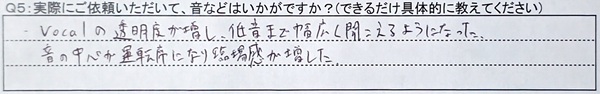 Q5:実際にご依頼いただいて、音などはいかがですか?(できるだけ具体的に教えてください)
・Vocalの透明度が増し、低音まで幅広く聞こえるようになった。
音の中心が運転席になり臨場感が増した。